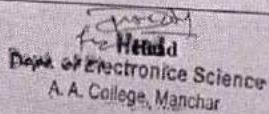 Head
Dept. of Electronice Science
A. A. College, Manchar